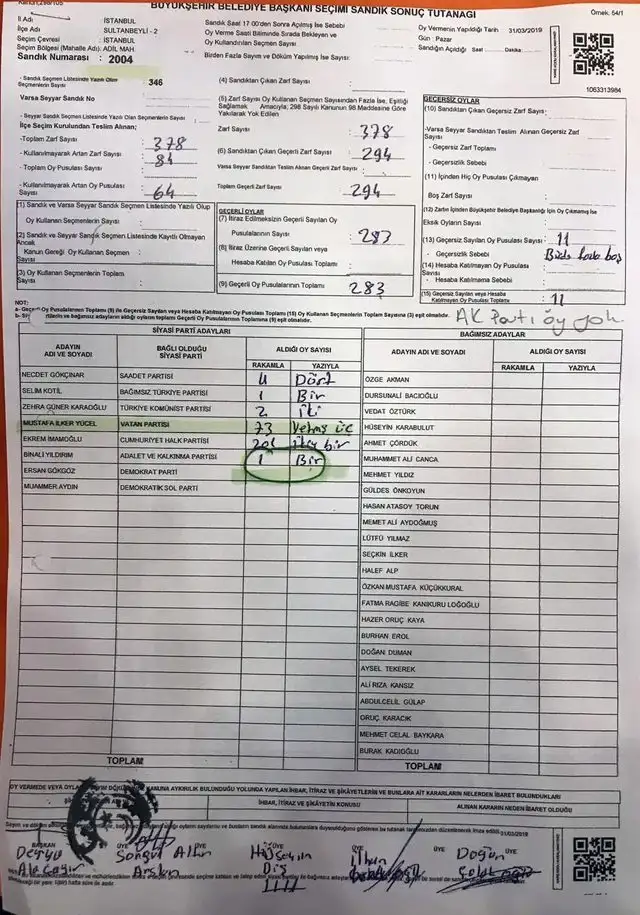 BÜYÜKŞEHİR BELEDİYE BAŞKANI SEÇİMİ SANDIK SONUÇ TUTANAĞI
Örnek: 54/1
İl Adı : İSTANBUL
İlçe Adı : SULTANBEYLİ - 2
Seçim Çevresi : İSTANBUL
Seçim Bölgesi (Mahalle) Adı : ADİL MAH.
Sandık Numarası : 2004
Sandık Saat 17:00'den Sonra Açılmış İse Sebebi :
Oy Verme Saati Bitiminde Sırada Bekleyen ve
Oy Kullandırılan Seçmen Sayısı :
Birden Fazla Sayım ve Döküm Yapılmış İse Sayısı:
Oy Vermenin Yapıldığı Tarih : 31/03/2019
Gün : Pazar
Sandığın Açıldığı Saat : Dakika:
1063313984
- Sandık Seçmen Listesinde Yazılı Olan
Seçmenlerin Sayısı : 346
Varsa Seyyar Sandık No :
- Seyyar Sandık Seçmen Listesinde Yazılı Olan Seçmenlerin Sayısı :
İlçe Seçim Kurulundan Teslim Alınan;
-Toplam Zarf Sayısı : 378
- Kullanılmayarak Artan Zarf Sayısı : 84
- Toplam Oy Pusulası Sayısı :
- Kullanılmayarak Artan Oy Pusulası Sayısı : 64
(1) Sandık ve Varsa Seyyar Sandık Seçmen Listesinde Yazılı Olup
Oy Kullanan Seçmenlerin Sayısı :
(2) Sandık ve Seyyar Sandık Seçmen Listesinde Kayıtlı Olmayan Ancak
Kanun Gereği Oy Kullanan Seçmen Sayısı :
(3) Oy Kullanan Seçmenlerin Toplam Sayısı :
(4) Sandıktan Çıkan Zarf Sayısı :
(5) Zarf Sayısı Oy Kullanan Seçmen Sayısından Fazla İse, Eşitliği
Sağlamak Amacıyla, 298 Sayılı Kanunun 98 Maddesine Göre
Yakılarak Yok Edilen
Zarf Sayısı : 378
(6) Sandıktan Çıkan Geçerli Zarf Sayısı : 294
Varsa Seyyar Sandıktan Teslim Alınan Geçerli Zarf Sayısı :
Toplam Geçerli Zarf Sayısı : 294
GEÇERLİ OYLAR
(7) İtiraz Edilmeksizin Geçerli Sayılan Oy
Pusulalarının Sayısı : 283
(8) İtiraz Üzerine Geçerli Sayılan veya
Hesaba Katılan Oy Pusulaları Toplamı :
(9) Geçerli Oy Pusulalarının Toplamı : 283
GEÇERSİZ OYLAR
(10) Sandıktan Çıkan Geçersiz Zarf Sayısı :
-Varsa Seyyar Sandıktan Teslim Alınan Geçersiz Zarf Sayısı :
- Geçersiz Zarf Toplamı :
- Geçersizlik Sebebi :
(11) İçinden Hiç Oy Pusulası Çıkmayan
Boş Zarf Sayısı :
(12) Zarfın İçinden Büyükşehir Belediye Başkanlığı İçin Oy Çıkmamış İse
Eksik Oyların Sayısı :
(13) Geçersiz Sayılan Oy Pusulası Sayısı : 11
- Geçersizlik Sebebi :
(14) Hesaba Katılmayan Oy Pusulası Sayısı :
- Hesaba Katılmama Sebebi :
(15) Geçersiz Sayılan veya Hesaba
Katılmayan Oy Pusulası Toplamı : 11
AK Parti oy yok.
NOT:
SİYASİ PARTİ ADAYLARI
BAĞIMSIZ ADAYLAR
ADAYIN ADI VE SOYADI BAĞLI OLDUĞU SİYASİ PARTİ ALDIĞI OY SAYISI RAKAMLA YAZIYLA
ADAYIN ADI VE SOYADI ALDIĞI OY SAYISI RAKAMLA YAZIYLA
NECDET GÖKÇINAR SAADET PARTİSİ 4 Dört
SELİM KOTİL BAĞIMSIZ TÜRKİYE PARTİSİ 1 Bir
ZEHRA GÜNER KARAOĞLU TÜRKİYE KOMÜNİST PARTİSİ 2 İki
MUSTAFA İLKER YÜCEL VATAN PARTİSİ 73 Yetmiş üç
EKREM İMAMOĞLU CUMHURİYET HALK PARTİSİ 201
BİNALİ YILDIRIM ADALET VE KALKINMA PARTİSİ 1 Bir
ERSAN GÖKGÖZ DEMOKRAT PARTİ
MUAMMER AYDIN DEMOKRATİK SOL PARTİ
ÖZGE AKMAN
DURSUNALİ BACIOĞLU
VEDAT ÖZTÜRK
HÜSEYİN KARABULUT
AHMET ÇÖRDÜK
MUHAMMET ALİ CANCA
MEHMET YILDIZ
GÜLDES ÖNKOYUN
HASAN ATASOY TORUN
MEMET ALİ AYDOĞMUŞ
LÜTFÜ YILMAZ
SEÇKİN İLKER
HALEF ALP
ÖZKAN MUSTAFA KÜÇÜKKURAL
FATMA RAGİBE KANIKURU LOĞOĞLU
HAZER ORUÇ KAYA
BURHAN EROL
DOĞAN DUMAN
AYSEL TEKEREK
ALİ RIZA KANSIZ
ABDULCELİL GÜLAP
ORUÇ KARACIK
MEHMET CELAL BAYKARA
BURAK KADIOĞLU
TOPLAM
TOPLAM
İHBAR, İTİRAZ VE ŞİKAYETİN KONUSU
ALINAN KARARIN NEDEN İBARET OLDUĞU
BAŞKAN ÜYE ÜYE ÜYE ÜYE
Derya Songül Altın Hüseyin İlhan Doğan
Arslan